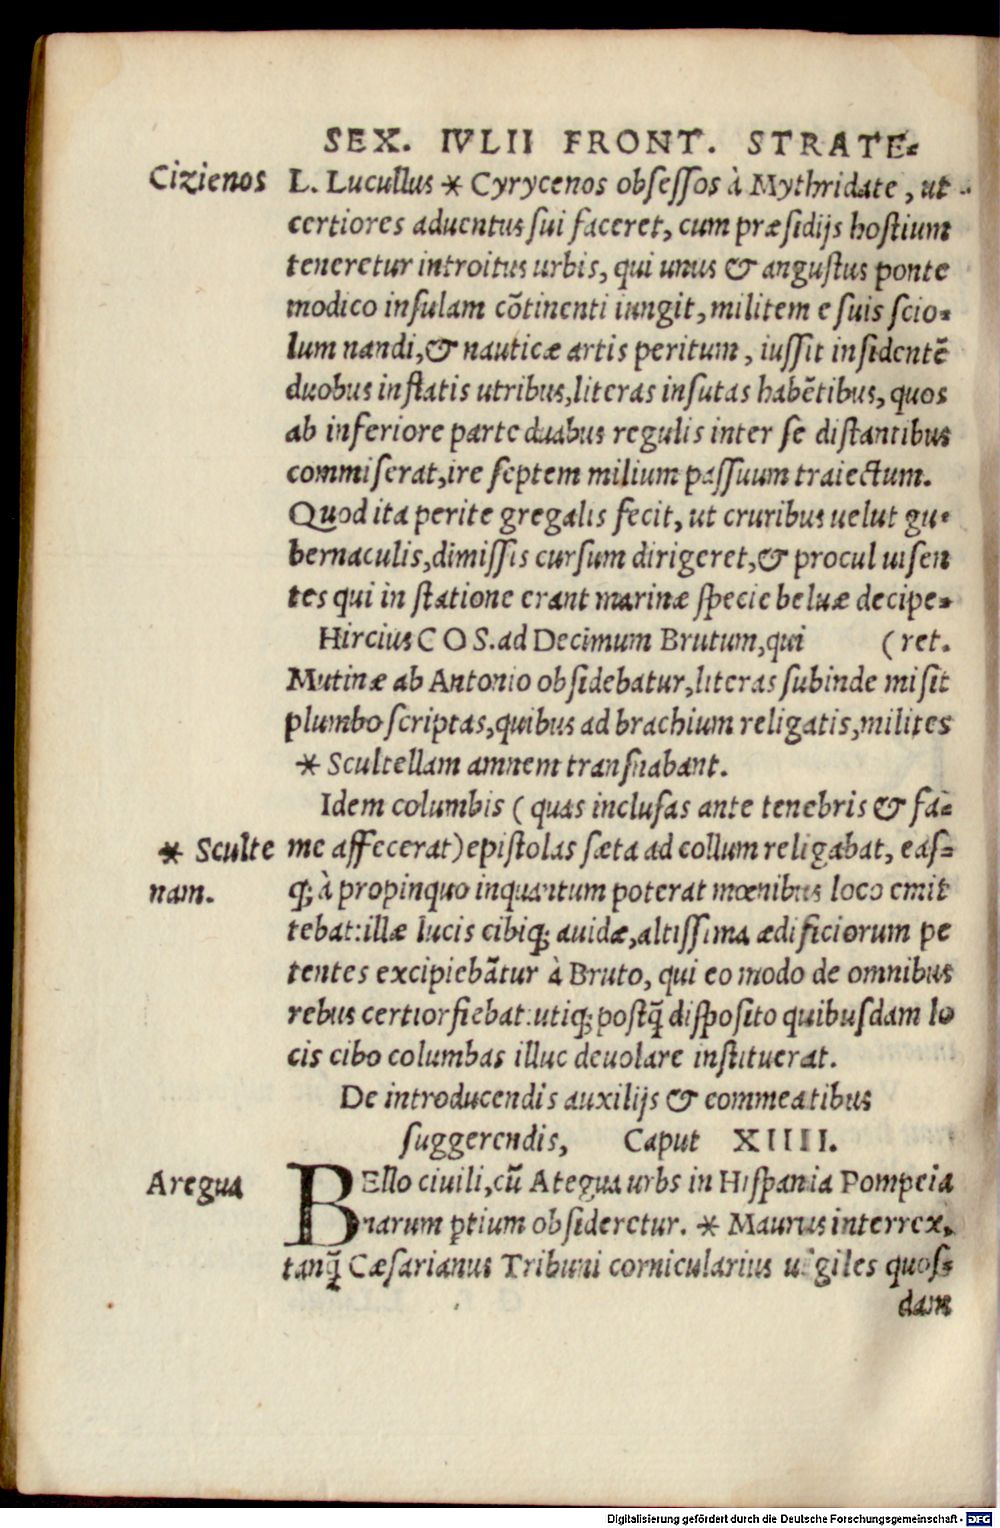 SEX. IVLII FRONT. STRATE-
Cizienos L. Lucullus * Cyrycenos obſeſſos à Mythridate, ut
certiores aduentus ſui faceret, cum præſidijs hoſtium
teneretur introitus urbis, qui unus & anguſtus ponte
modico inſulam cõtinenti iungit, militem e ſuis ſcio-
lum nandi, & nauticæ artis peritum, iuſſit inſidentẽ
duobus inflatis utribus, literas inſutas habẽtibus, quos
ab inferiore parte duabus regulis inter ſe diſtantibus
commiſerat, ire ſeptem milium paſſuum traiectum.
Quod ita perite gregalis fecit, ut cruribus uelut gu-
bernaculis, dimiſſis curſum dirigeret, & procul uiſen
tes qui in ſtatione erant marinæ ſpecie beluæ decipe-
Hircius COS. ad Decimum Brutum, qui (ret.
Mutinæ ab Antonio obſidebatur, literas ſubinde miſit
plumbo ſcriptas, quibus ad brachium religatis, milites
* Scultellam amnem tranſnabant.
Idem columbis (quas incluſas ante tenebris & fa-
* Sculte me affecerat) epiſtolas ſæta ad collum religabat, eaſ-
nam. q; à propinquo inquantum poterat mœnibus loco emit
tebat: illæ lucis cibiq; auidæ, altiſſima ædificiorum pe
tentes excipiebãtur à Bruto, qui eo modo de omnibus
rebus certior fiebat: utiq; poſtq̃ diſpoſito quibuſdam lo
cis cibo columbas illuc deuolare inſtituerat.
De introducendis auxilijs & commeatibus
ſuggerendis, Caput XIIII.
Aregua BEllo ciuili, cũ Ategua urbs in Hiſpania Pompeia
narum ꝑtium obſideretur. * Maurus interrex,
tanq̃ Cæſarianus Tribuni cornicularius uigiles quoſ-
dam
Digitalisierung gefördert durch die Deutsche Forschungsgemeinschaft - DFG